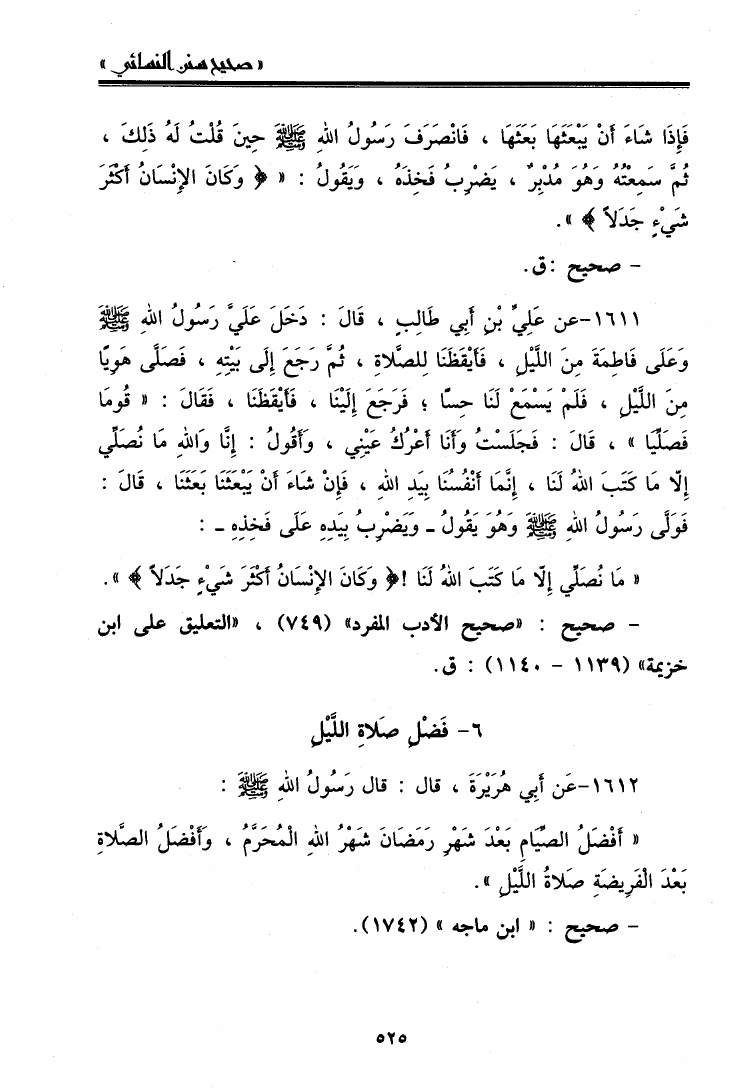 « صحيح سنن النسائي »
فَإِذَا شَاءَ أَنْ يَبْعَثَهَا بَعَثَهَا ، فَانْصَرَفَ رَسُولُ اللهِ ﷺ حِينَ قُلْتُ لَهُ ذَلِكَ ،
ثُمَّ سَمِعْتُهُ وَهُوَ مُدْبِرٌ ، يَضْرِبُ فَخِذَهُ ، وَيَقُولُ : « ﴿ وَكَانَ الإِنْسَانُ أَكْثَرَ
شَيْءٍ جَدَلاً ﴾ ».
– صحيح :ق.
١٦١١-عن عَلِيِّ بْنِ أَبِي طَالِبٍ ، قَالَ : دَخَلَ عَلَيَّ رَسُولُ اللهِ ﷺ
وَعَلَى فَاطِمَةَ مِنَ اللَّيْلِ ، فَأَيْقَظَنَا لِلصَّلاةِ ، ثُمَّ رَجَعَ إِلَى بَيْتِهِ ، فَصَلَّى هَوِيًّا
مِنَ اللَّيْلِ ، فَلَمْ يَسْمَعْ لَنَا حِسًّا ؛ فَرَجَعَ إِلَيْنَا ، فَأَيْقَظَنَا ، فَقَالَ : « قُومَا
فَصَلِّيَا » ، قَالَ : فَجَلَسْتُ وَأَنَا أَعْرُكُ عَيْنِي ، وَأَقُولُ : إِنَّا وَاللهِ مَا نُصَلِّي
إِلّا مَا كَتَبَ اللهُ لَنَا ، إِنَّمَا أَنْفُسُنَا بِيَدِ اللهِ ، فَإِنْ شَاءَ أَنْ يَبْعَثَنَا بَعَثَنَا ، قَالَ :
فَوَلَّى رَسُولُ اللهِ ﷺ وَهُوَ يَقُولُ ـ وَيَضْرِبُ بِيَدِهِ عَلَى فَخِذِهِ ـ :
« مَا نُصَلِّي إِلّا مَا كَتَبَ اللهُ لَنَا !﴿ وَكَانَ الإِنْسَانُ أَكْثَرَ شَيْءٍ جَدَلاً ﴾ ».
– صحيح : «صحيح الأدب المفرد» (٧٤٩) ، «التعليق على ابن
خزيمة» (١١٣٩ – ١١٤٠) : ق.
٦- فَضْلِ صَلاةِ اللَّيْلِ
١٦١٢-عَن أَبِي هُرَيْرَةَ ، قال : قال رَسُولُ اللهِ ﷺ :
« أَفْضَلُ الصِّيَامِ بَعْدَ شَهْرِ رَمَضَانَ شَهْرُ اللهِ الْمُحَرَّمُ ، وَأَفْضَلُ الصَّلاةِ
بَعْدَ الْفَرِيضَةِ صَلاةُ اللَّيْلِ ».
– صحيح : « ابن ماجه » (١٧٤٢).
٥٢٥